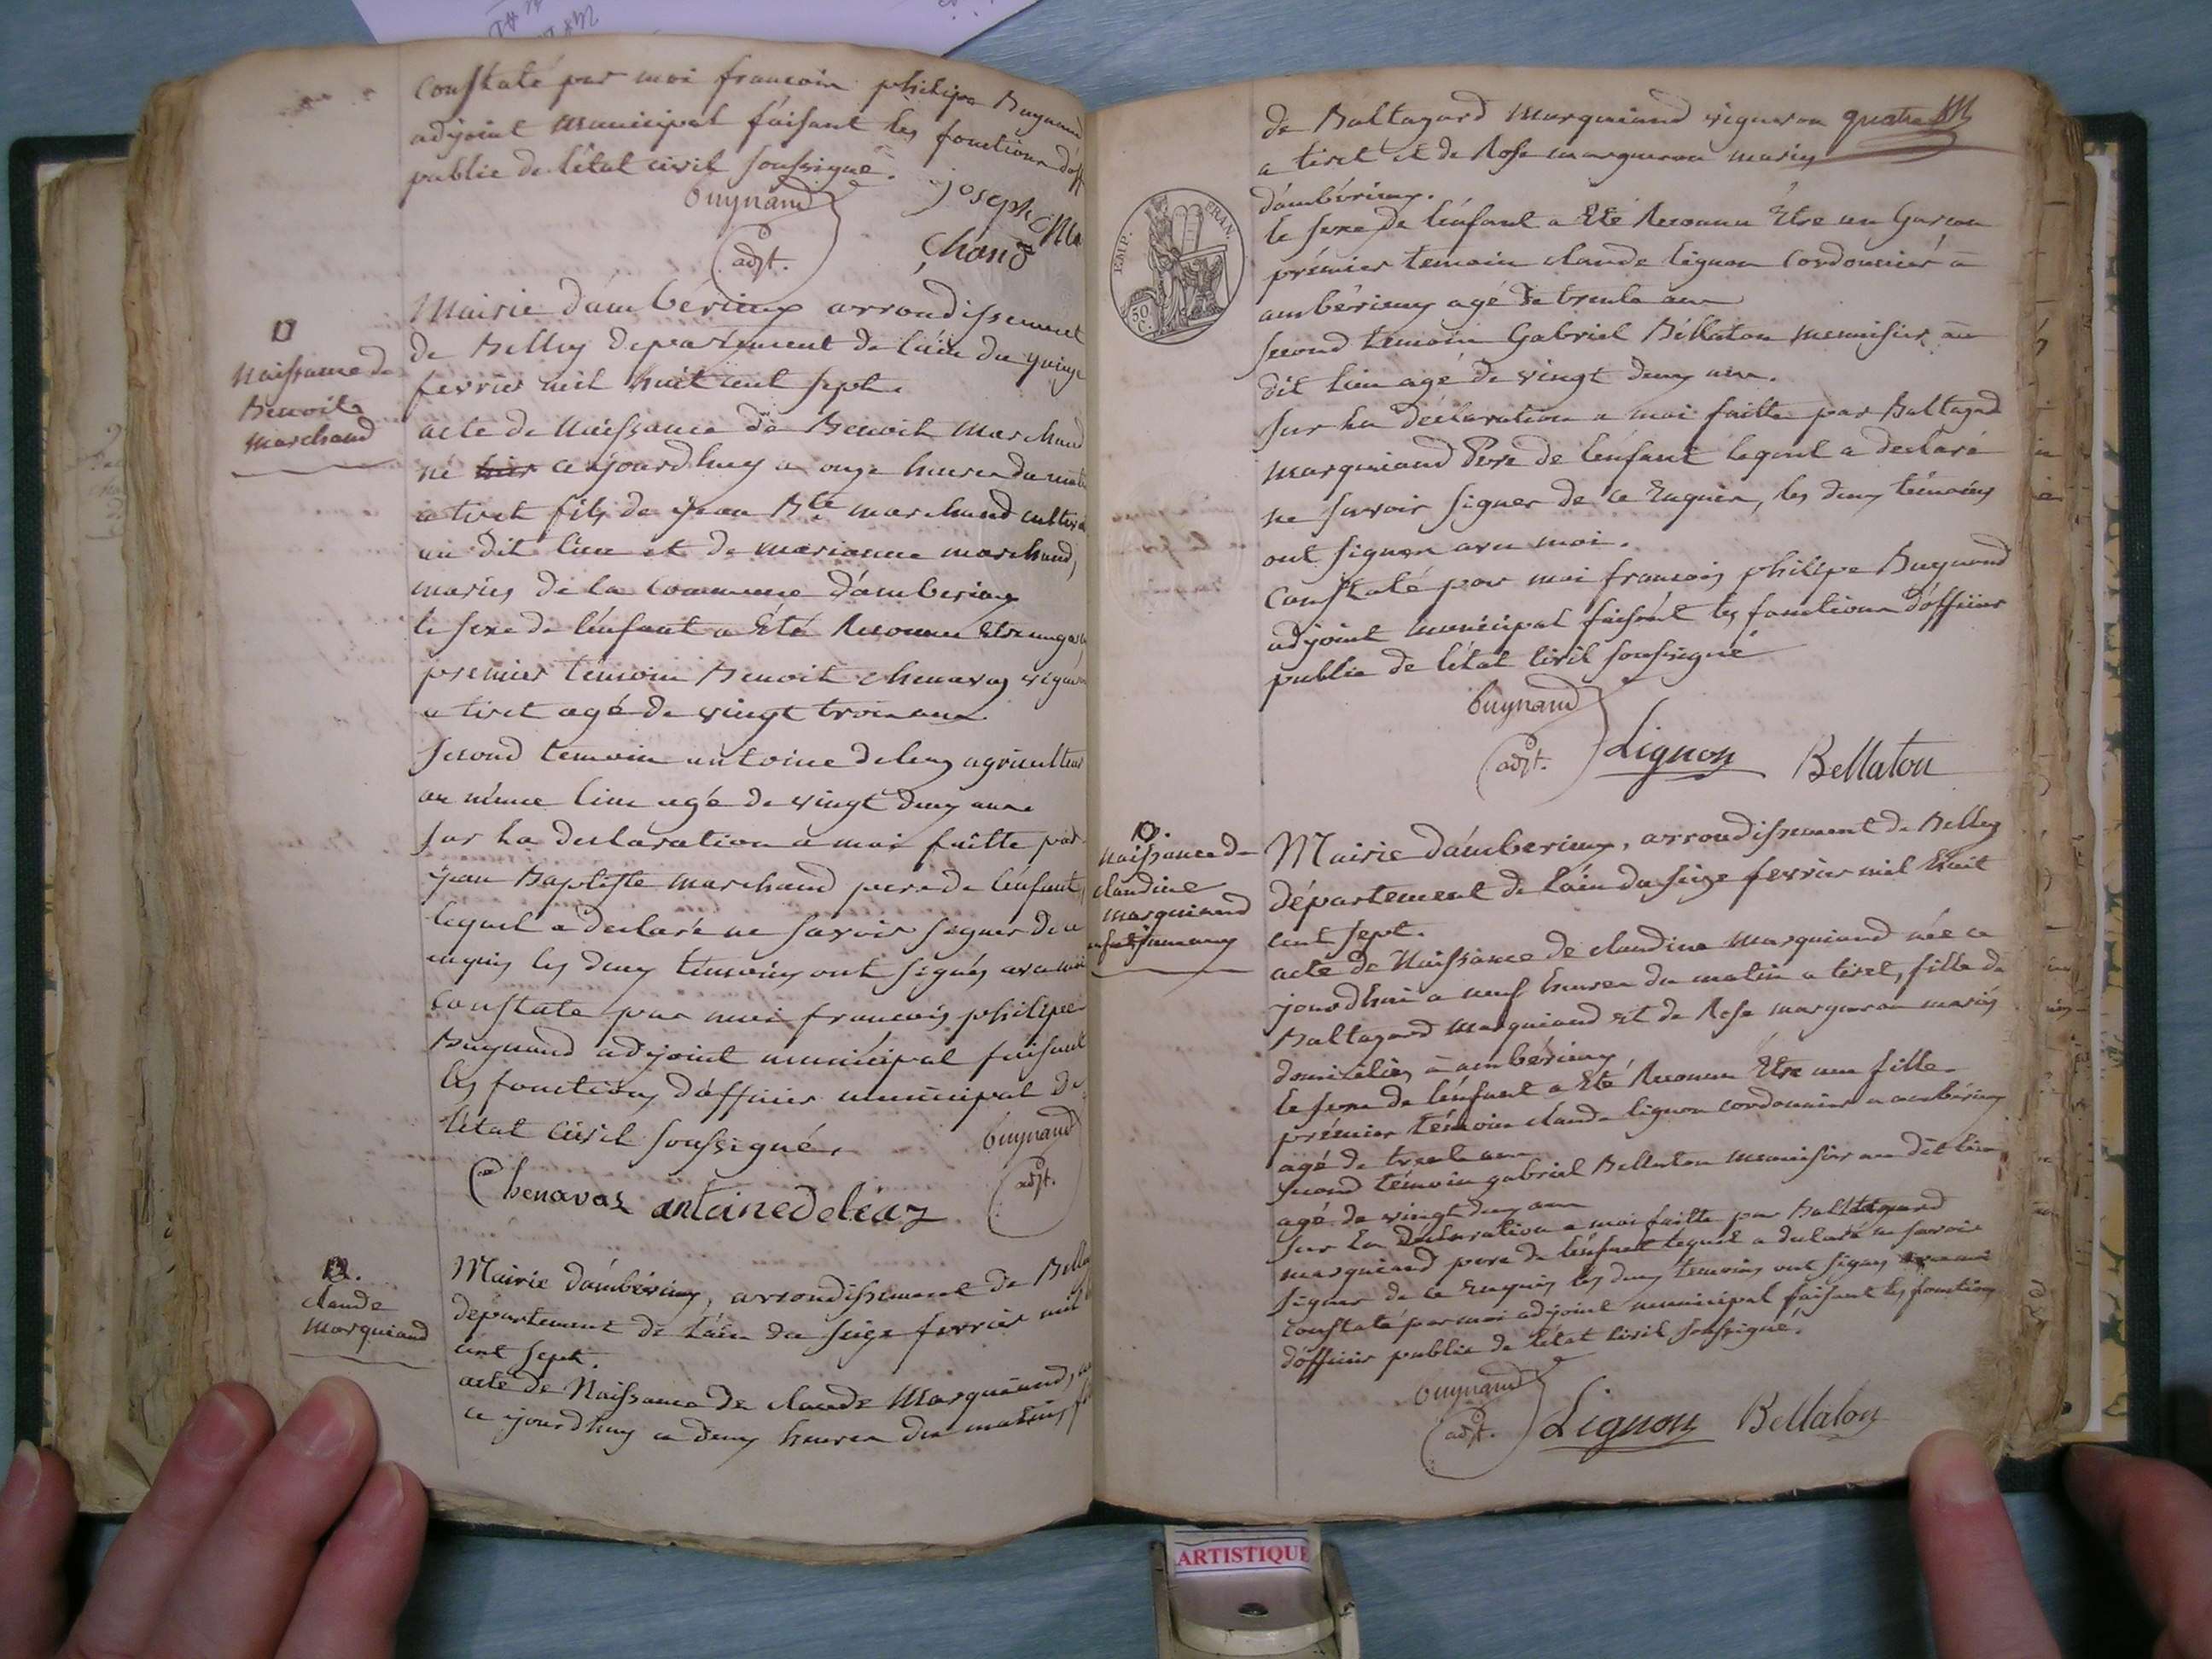 constaté par moi francois philipe Buynand
adjoint municipal faisant les fonctions d'off
public de l'état civil soussigné.
buynand
adjt.
joseph Ma
chand
Naissance de
Benoit
marchand
Mairie d'ambérieux arrondissement
de Belley departement de l'ain du quinze
fevrier mil huit cent sept.
acte de Naissance de Benoit Marchand
né hier cejourdhuy a onze heures du matin
a tiret fils de jean Bte marchand cultiva
au dit lieu et de marianne marchand,
mariés de la commune d'amberieux
le sexe de l'enfant a Eté Reconnu Etre un garcon
premier témoin Benoit chenavas vigneron
a tiret agé de vingt trois ans
second temoin antoine deleaz agriculteur
au même lieu agé de vingt deux ans
sur la declaration a moi faitte par
jean Baptiste marchand pere de l'enfant,
lequel a declaré ne savoir signer de ce
enquis les deux témoins ont signés avec moi
constaté par moi francois philipe
Buynand adjoint municipal faisant
les fonctions d'officier municipal de
l'etat civil soussigné.
buynand
adjt.
Chenavas antoine deléaz
claude
Marquiand
Mairie d'ambérieux, arrondissement de Belley
departement de l'ain du seize fevrier mil h
cent sept.
acte de Naissance de claude Marquiand, né
ce jourdhuy a deux heures du matin, fi
de Baltazard Marquiand vigneron
a tiret et de Rose margueron mariés
d'ambérieux.
EMP. FRAN.
50 C.
le sexe de l'enfant a Eté Reconnu Etre un Garcon
prémier temoin claude lignon Cordonnier a
ambérieux agé de trente ans
second temoin Gabriel Béllaton menuisier au
dit lieu agé de vingt deux ans.
sur la déclaration a moi faitte par Baltazard
Marquiand Pere de l'enfant lequel a declaré
ne savoir signer de ce Enquis, les deux témoins
ont signés avec moi.
Constaté par moi francois philipe Buynand
adjoint municipal faisant les fonctions d'officier
public de l'état civil soussigné
buynand
adjt.
Lignon Bellaton
naissance de
claudine
marquiand
Mairie d'amberieux, arrondissement de Belley
département de l'ain du seize fevrier mil huit
cent sept.
acte de Naissance de claudine Marquiand née ce
jourdhui a neuf heures du matin a tiret, fille de
Baltazard Marquiand et de Rose margueron mariés
domiciliés a ambérieux
le sexe de l'enfant a Eté Reconnu Etre une fille
prémier témoin claude lignon cordonnier a ambérieux
agé de trente ans
second témoin gabriel Bellaton menuisier au dit lieu
agé de vingt deux ans
sur la déclaration a moi faitte par Baltazard
marquiand pere de l'enfant lequel a declaré ne savoir
signer de ce Enquis les deux temoins ont signés avec moi
constaté par moi adjoint municipal faisant les fonctions
d'officier public de l'état civil soussigné.
buynand
adjt.
Lignon Bellaton
ARTISTIQUE